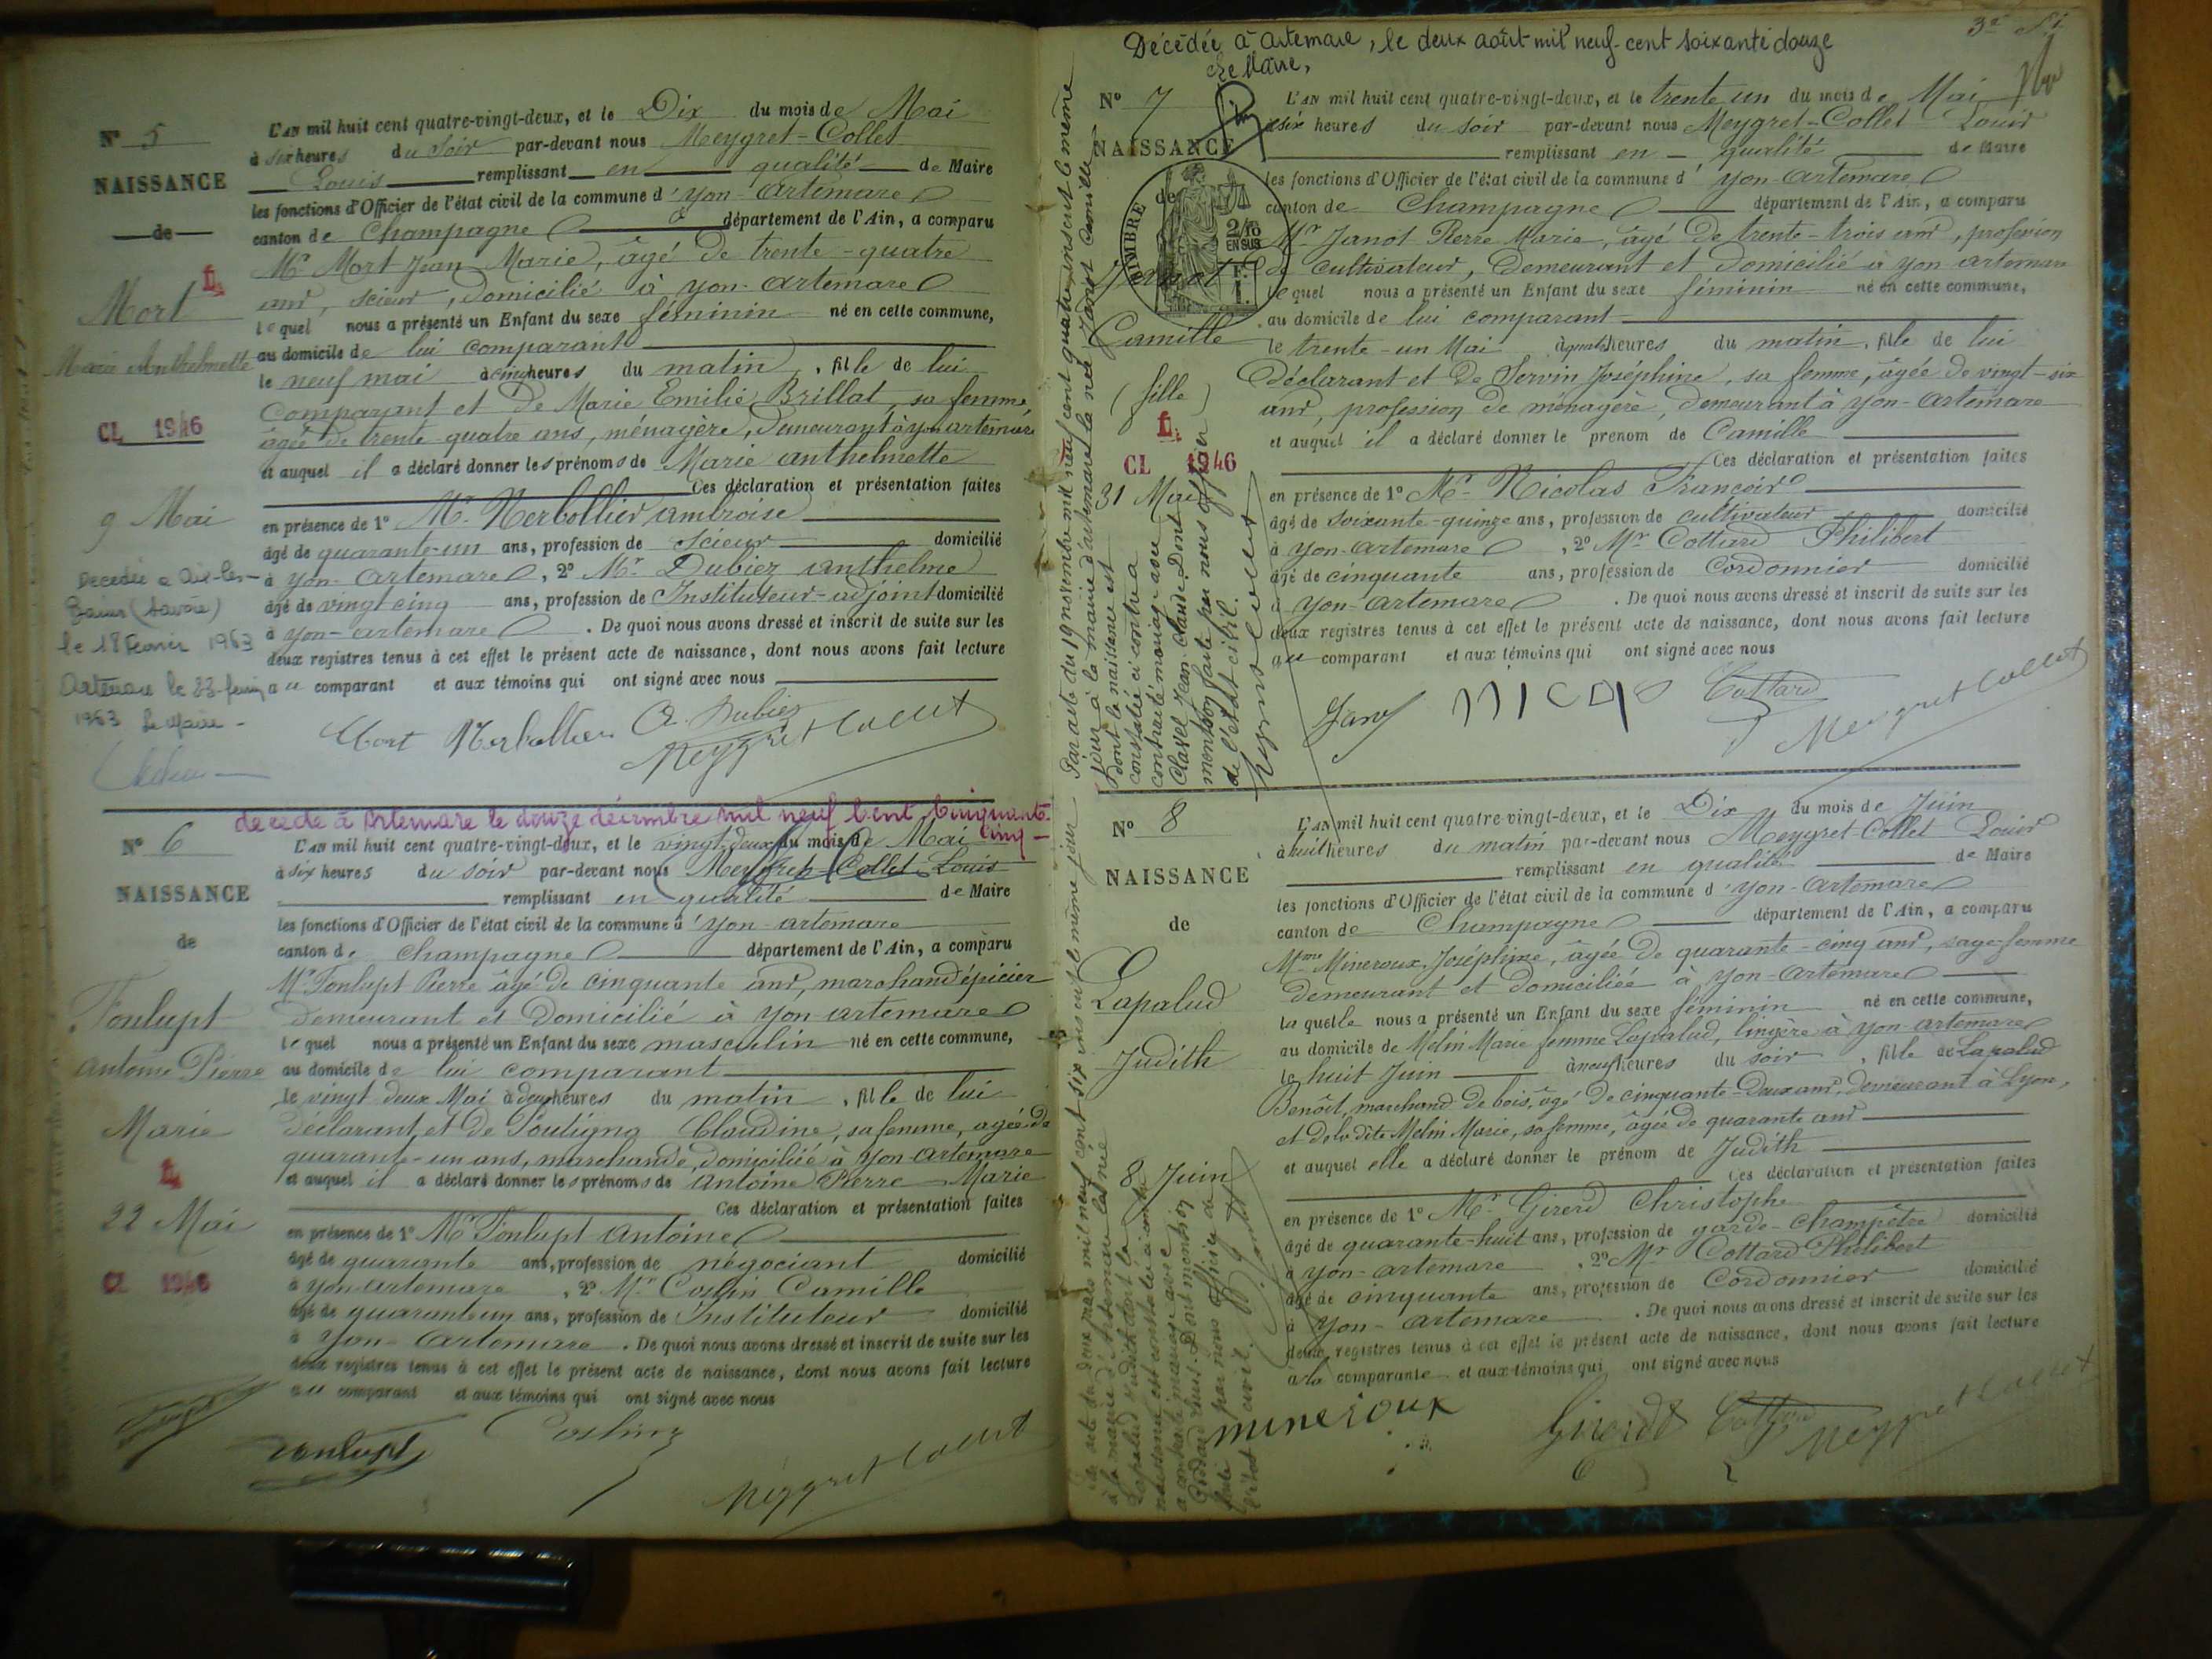 N° 5
NAISSANCE
de
Mort
Marie Anthelmette
CL 1946
9 Mai
Décédée à Aix-les-
Bains (Savoie)
le 18 Février 1963
Artemare le 23 février
1963 Le Maire
L'AN mil huit cent quatre-vingt-deux, et le Dix du mois de Mai
à six heures du Soir par-devant nous Meygret-Collet
Louis remplissant en qualité de Maire
les fonctions d'Officier de l'état civil de la commune d'yon-Artemare
canton de Champagne département de l'Ain, a comparu
Mr Mort Jean Marie, âgé de trente-quatre
ans, scieur, domicilié à yon-artemare
lequel nous a présenté un Enfant du sexe féminin né en cette commune,
au domicile de lui comparant
le neuf mai à cinq heures du matin, fille de lui
Comparant et de Marie Emilie Brillat, sa femme,
âgée de trente quatre ans, ménagère, demeurant à yon artemare
et auquel il a déclaré donner les prénoms de Marie anthelmette
Ces déclaration et présentation faites
en présence de 1° Mr. Herbollier Ambroise
âgé de quarante-un ans, profession de scieur domicilié
à yon-Artemare, 2° Mr. Dubiez Anthelme
âgé de vingt cinq ans, profession de Instituteur-adjoint domicilié
à yon-artemare. De quoi nous avons dressé et inscrit de suite sur les
deux registres tenus à cet effet le présent acte de naissance, dont nous avons fait lecture
au comparant et aux témoins qui ont signé avec nous
Mort Herbollier A. Dubiez
Meygret Collet
décédé à Artemare le douze décembre mil neuf cent cinquante
cinq
N° 6
NAISSANCE
de
Fonlupt
Antoine Pierre
Marie
22 Mai
CL 1946
L'AN mil huit cent quatre-vingt-deux, et le vingt-deux du mois de Mai
à six heures du soir par-devant nous Meygret-Collet Louis
remplissant en qualité de Maire
les fonctions d'Officier de l'état civil de la commune d'yon-artemare
canton de Champagne département de l'Ain, a comparu
Mr Fonlupt Pierre âgé de cinquante ans, marchand épicier
demeurant et domicilié à yon-artemare
lequel nous a présenté un Enfant du sexe masculin né en cette commune,
au domicile de lui comparant
le vingt deux Mai à deux heures du matin, fils de lui
déclarant, et de Claudine, sa femme, agée de
quarante-un ans, marchande, domiciliée à yon-artemare
et auquel il a déclaré donner les prénoms de Antoine Pierre Marie
Ces déclaration et présentation faites
en présence de 1° Mr Fonlupt Antoine
âgé de quarante ans, profession de négociant domicilié
à yon-artemare, 2° Mr Camille
âgé de quarante un ans, profession de Instituteur domicilié
à yon-Artemare. De quoi nous avons dressé et inscrit de suite sur les
deux registres tenus à cet effet le présent acte de naissance, dont nous avons fait lecture
au comparant et aux témoins qui ont signé avec nous
Fonlupt
Meygret Collet
3e
Décédée à Artemare, le deux août mil neuf-cent soixante douze
Le Maire,
N° 7
NAISSANCE
de
TIMBRE
2/10
EN SUS
F.
1.
Janot
Camille
(fille)
CL 1946
31 Mai
L'AN mil huit cent quatre-vingt-deux, et le trente un du mois de Mai
à six heures du soir par-devant nous Meygret-Collet Louis
remplissant en qualité de Maire
les fonctions d'Officier de l'état civil de la commune d'yon-artemare
canton de Champagne département de l'Ain, a comparu
Mr Janot Pierre Marie, âgé de trente-trois ans, profession
de cultivateur, demeurant et domicilié à yon-artemare
lequel nous a présenté un Enfant du sexe féminin né en cette commune,
au domicile de lui comparant
le trente-un Mai à quatre heures du matin, fille de lui
déclarant et de Servin Joséphine, sa femme, âgée de vingt-six
ans, profession de ménagère, demeurant à yon-artemare
et auquel il a déclaré donner le prénom de Camille
Ces déclaration et présentation faites
en présence de 1° Mr Nicolas François
âgé de soixante-quinze ans, profession de cultivateur domicilié
à yon-artemare, 2° Mr Cottard Philibert
âgé de cinquante ans, profession de Cordonnier domicilié
à yon-artemare. De quoi nous avons dressé et inscrit de suite sur les
deux registres tenus à cet effet le présent acte de naissance, dont nous avons fait lecture
au comparant et aux témoins qui ont signé avec nous
Cottard
Meygret Collet
Par acte du 19 novembre mil neuf cent quatre inscrit le même
jour à la mairie d'artemare la née Janot Camille
dont la naissance est
constatée ci contre a
contracté mariage avec
Clavel Jean-Claude. Dont
mention faite par nous officier
de l'état civil.
Meygret Collet
N° 8
NAISSANCE
de
Lapalud
Judith
8 Juin
L'AN mil huit cent quatre-vingt-deux, et le Dix du mois de Juin
à huit heures du matin par-devant nous Meygret-Collet Louis
remplissant en qualité de Maire
les fonctions d'Officier de l'état civil de la commune d'yon-artemare
canton de Champagne département de l'Ain, a comparu
Mme Mineroux Joséphine, âgée de quarante-cinq ans, sage-femme
demeurant et domiciliée à yon-artemare
laquelle nous a présenté un Enfant du sexe féminin né en cette commune,
au domicile de Melin Marie femme Lapalud, lingère à yon-artemare
le huit Juin à neuf heures du soir, fille de Lapalud
Benoît, marchand de bois, âgé de cinquante-deux ans, demeurant à Lyon,
et de la dite Melin Marie, sa femme, âgée de quarante ans
et auquel elle a déclaré donner le prénom de Judith
Ces déclaration et présentation faites
en présence de 1° Mr Girerd Christophe
âgé de quarante-huit ans, profession de garde-champêtre domicilié
à yon-artemare, 2° Mr Cottard Philibert
âgé de cinquante ans, profession de Cordonnier domicilié
à yon-artemare. De quoi nous avons dressé et inscrit de suite sur les
deux registres tenus à cet effet le présent acte de naissance, dont nous avons fait lecture
à la comparante et aux témoins qui ont signé avec nous
mineroux Girerd Cottard Meygret Collet
Par acte du deux mars mil neuf cent six inscrit le même jour
à la mairie d'Artemare la née
Lapalud Judith dont la
naissance est constatée ci contre
a contracté mariage avec
Dont mention
faite par nous officier de
l'état civil.